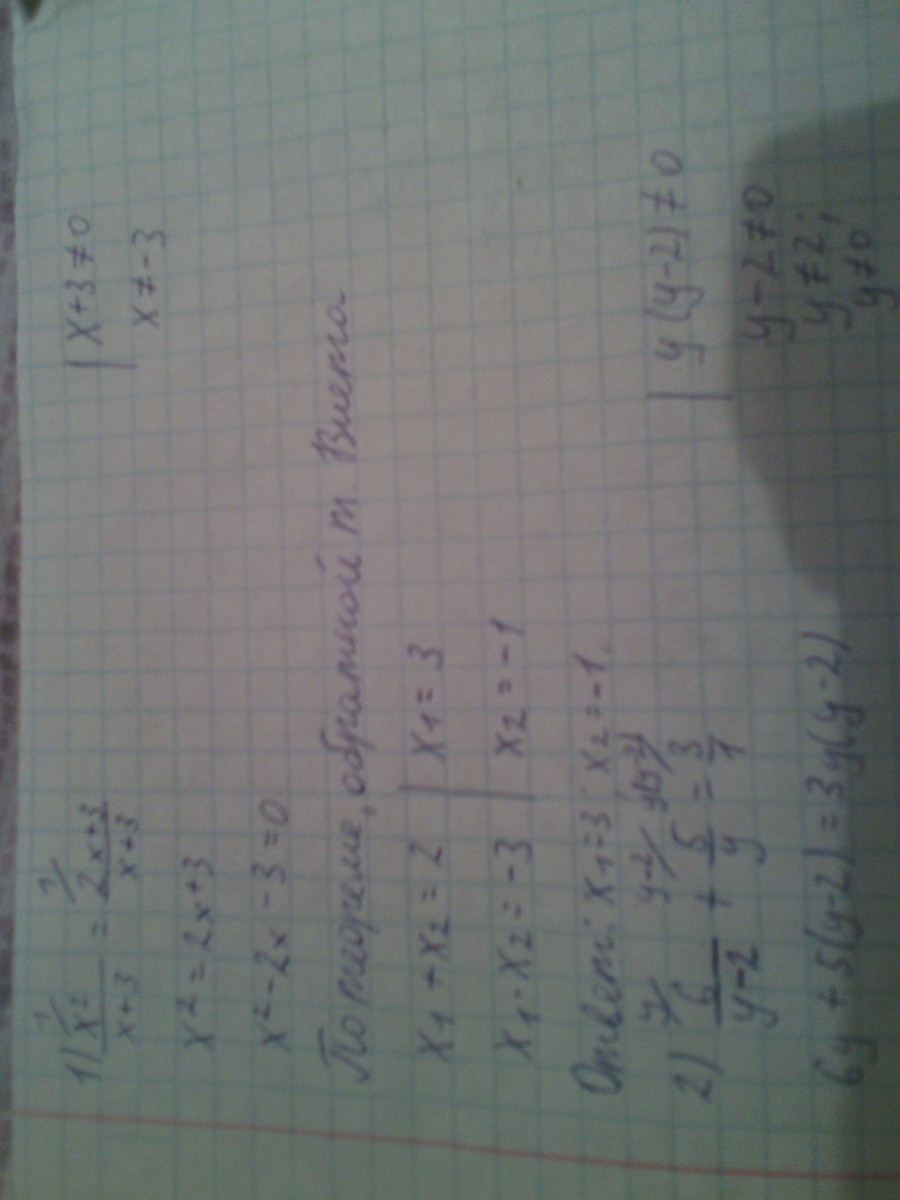 1) x²/(x+3) = (2x+3)/(x+3) | x+3≠0
x≠-3
x² = 2x+3
x²-2x-3=0
По теореме, обратной т Виета
x1+x2=2 | x1=3
x1·x2=-3 | x2=-1
Ответ: x1=3 x2=-1.
2) 6/(y-2) + 5/y = 3/1 | y(y-2)≠0
y-2≠0
y≠2;
y≠0
6y+5(y-2)=3y(y-2)